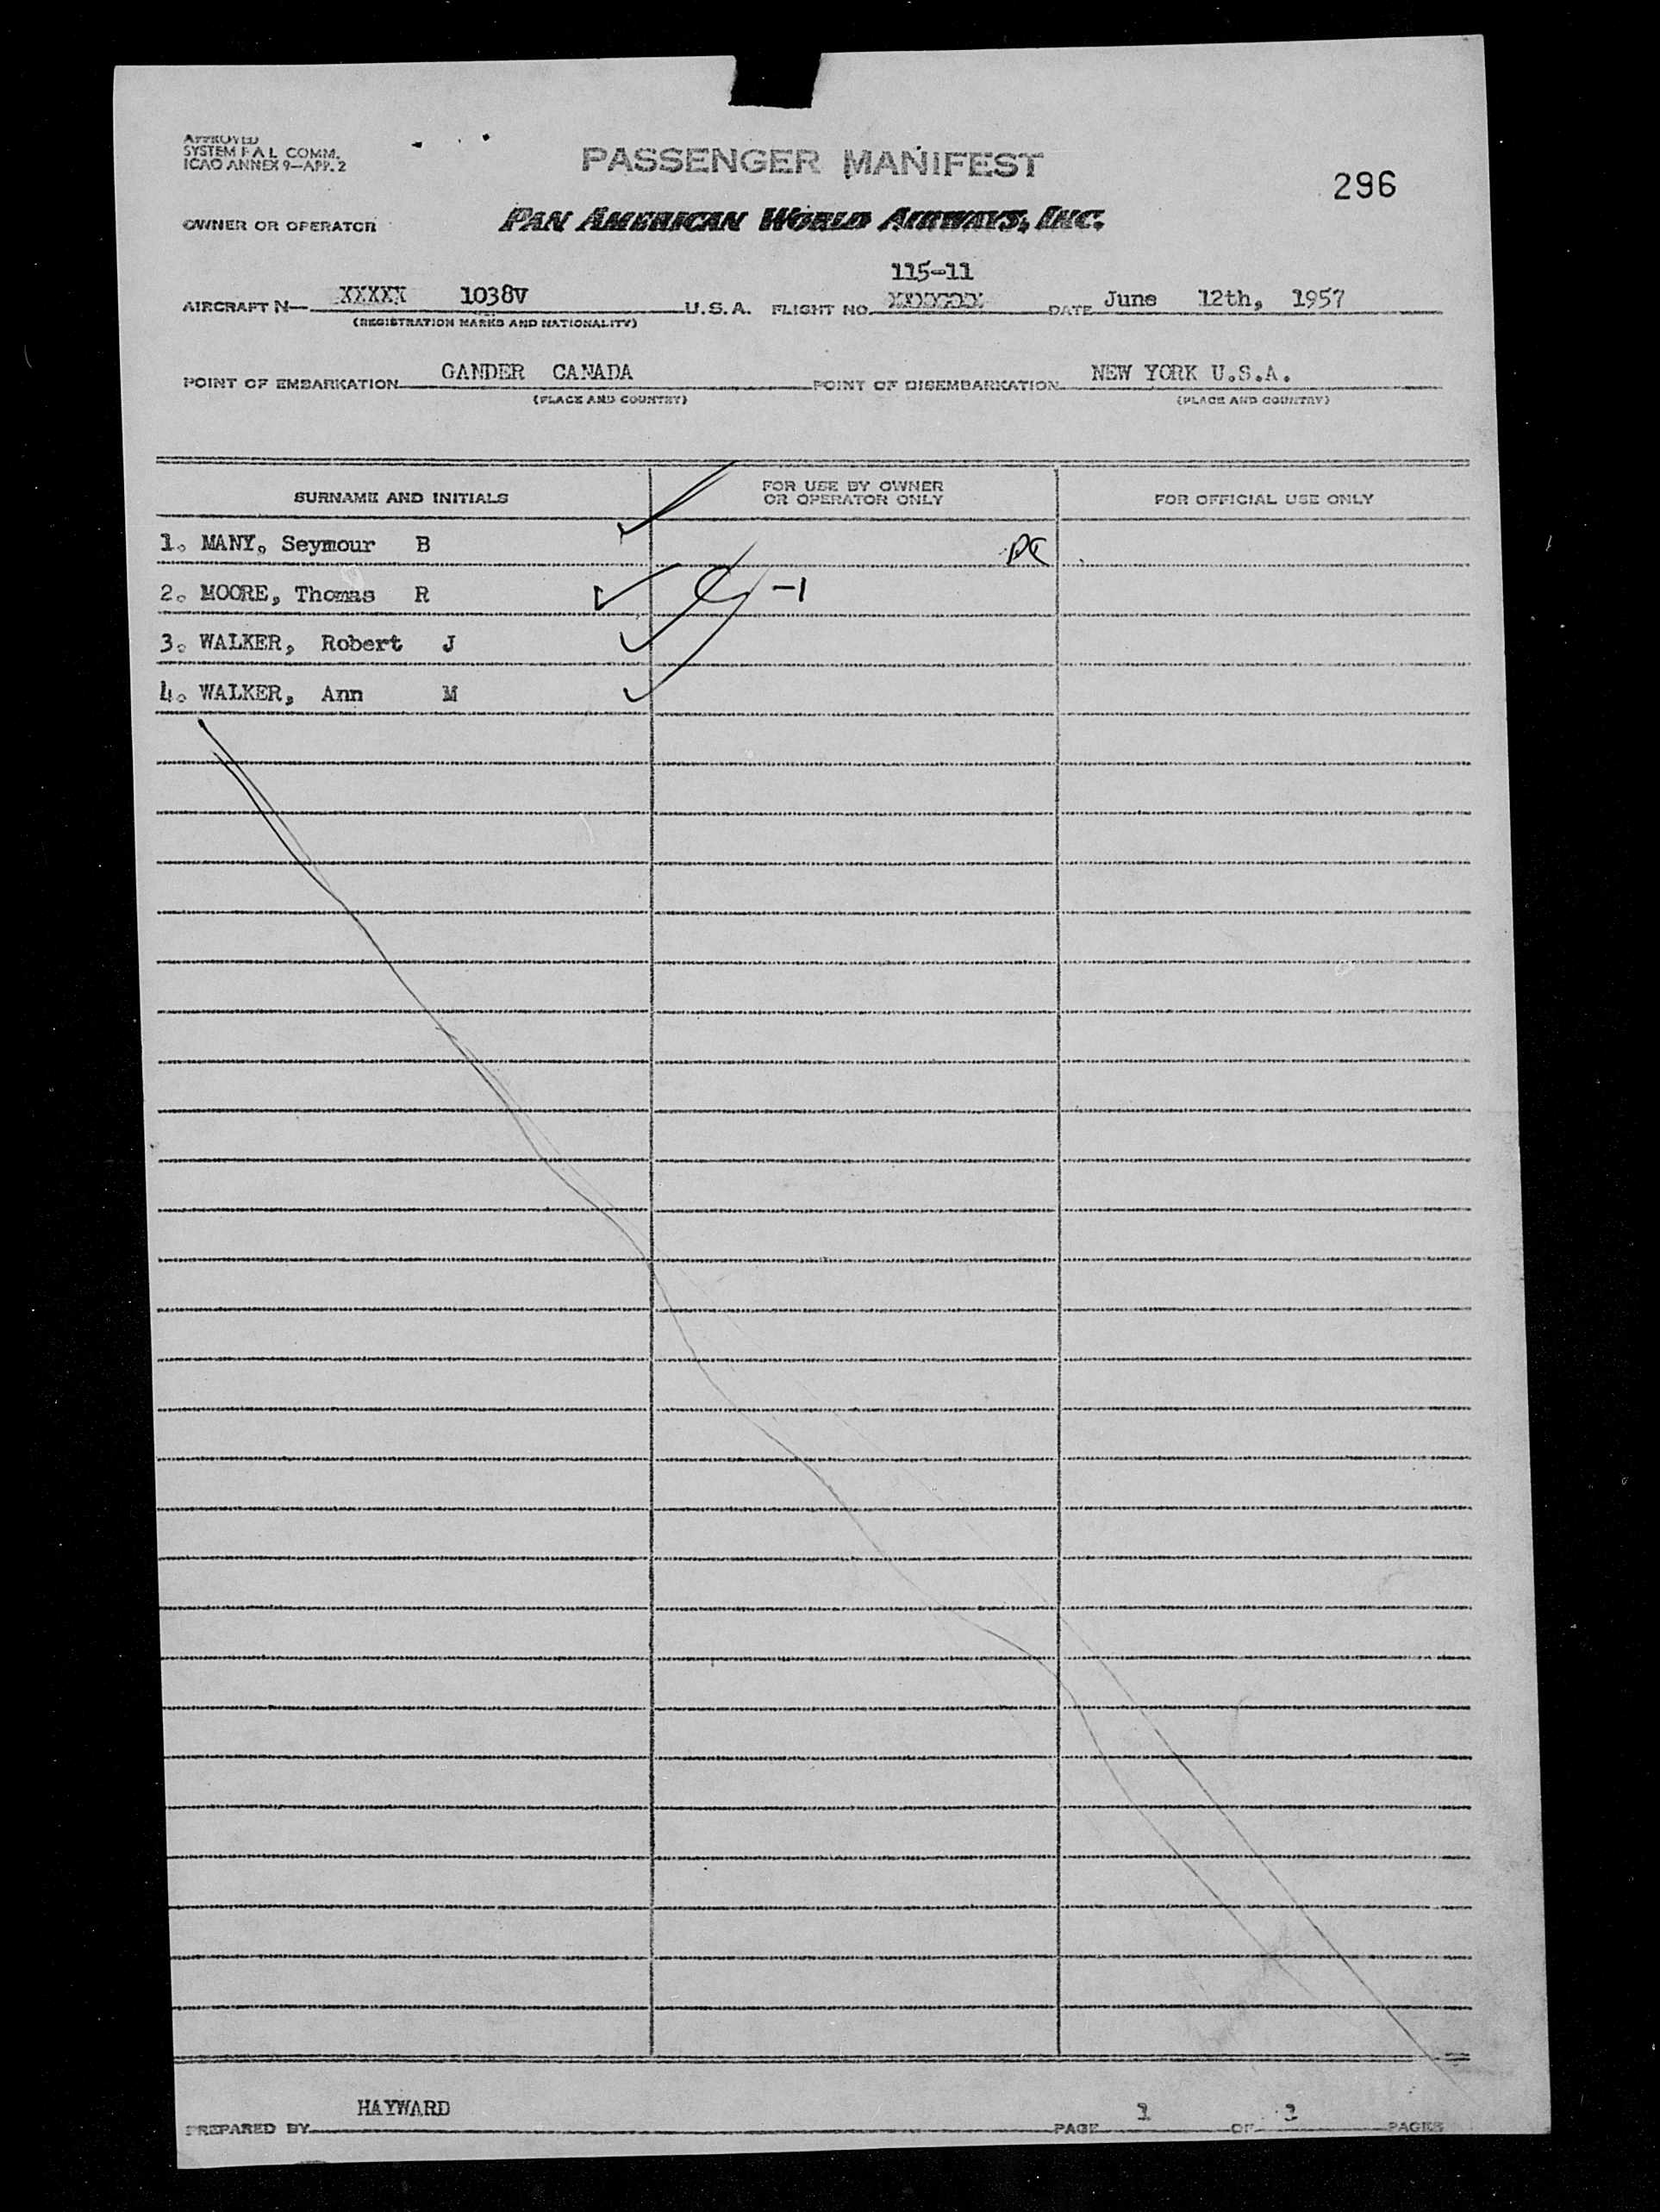 APPROVED
SYSTEM F A L COMM.
ICAO ANNEX 9—APP. 2
PASSENGER MANIFEST
296
OWNER OR OPERATOR PAN AMERICAN WORLD AIRWAYS, INC.
115-11
AIRCRAFT N— XXXXX 1038V U.S.A. FLIGHT NO. XXXXXX DATE June 12th, 1957
(REGISTRATION MARKS AND NATIONALITY)
POINT OF EMBARKATION GANDER CANADA POINT OF DISEMBARKATION NEW YORK U.S.A.
(PLACE AND COUNTRY) (PLACE AND COUNTRY)
SURNAME AND INITIALS
FOR USE BY OWNER
OR OPERATOR ONLY
FOR OFFICIAL USE ONLY
1. MANY, Seymour B
2. MOORE, Thomas R -1
3. WALKER, Robert J
4. WALKER, Ann M
PREPARED BY HAYWARD PAGE 1 OF PAGES